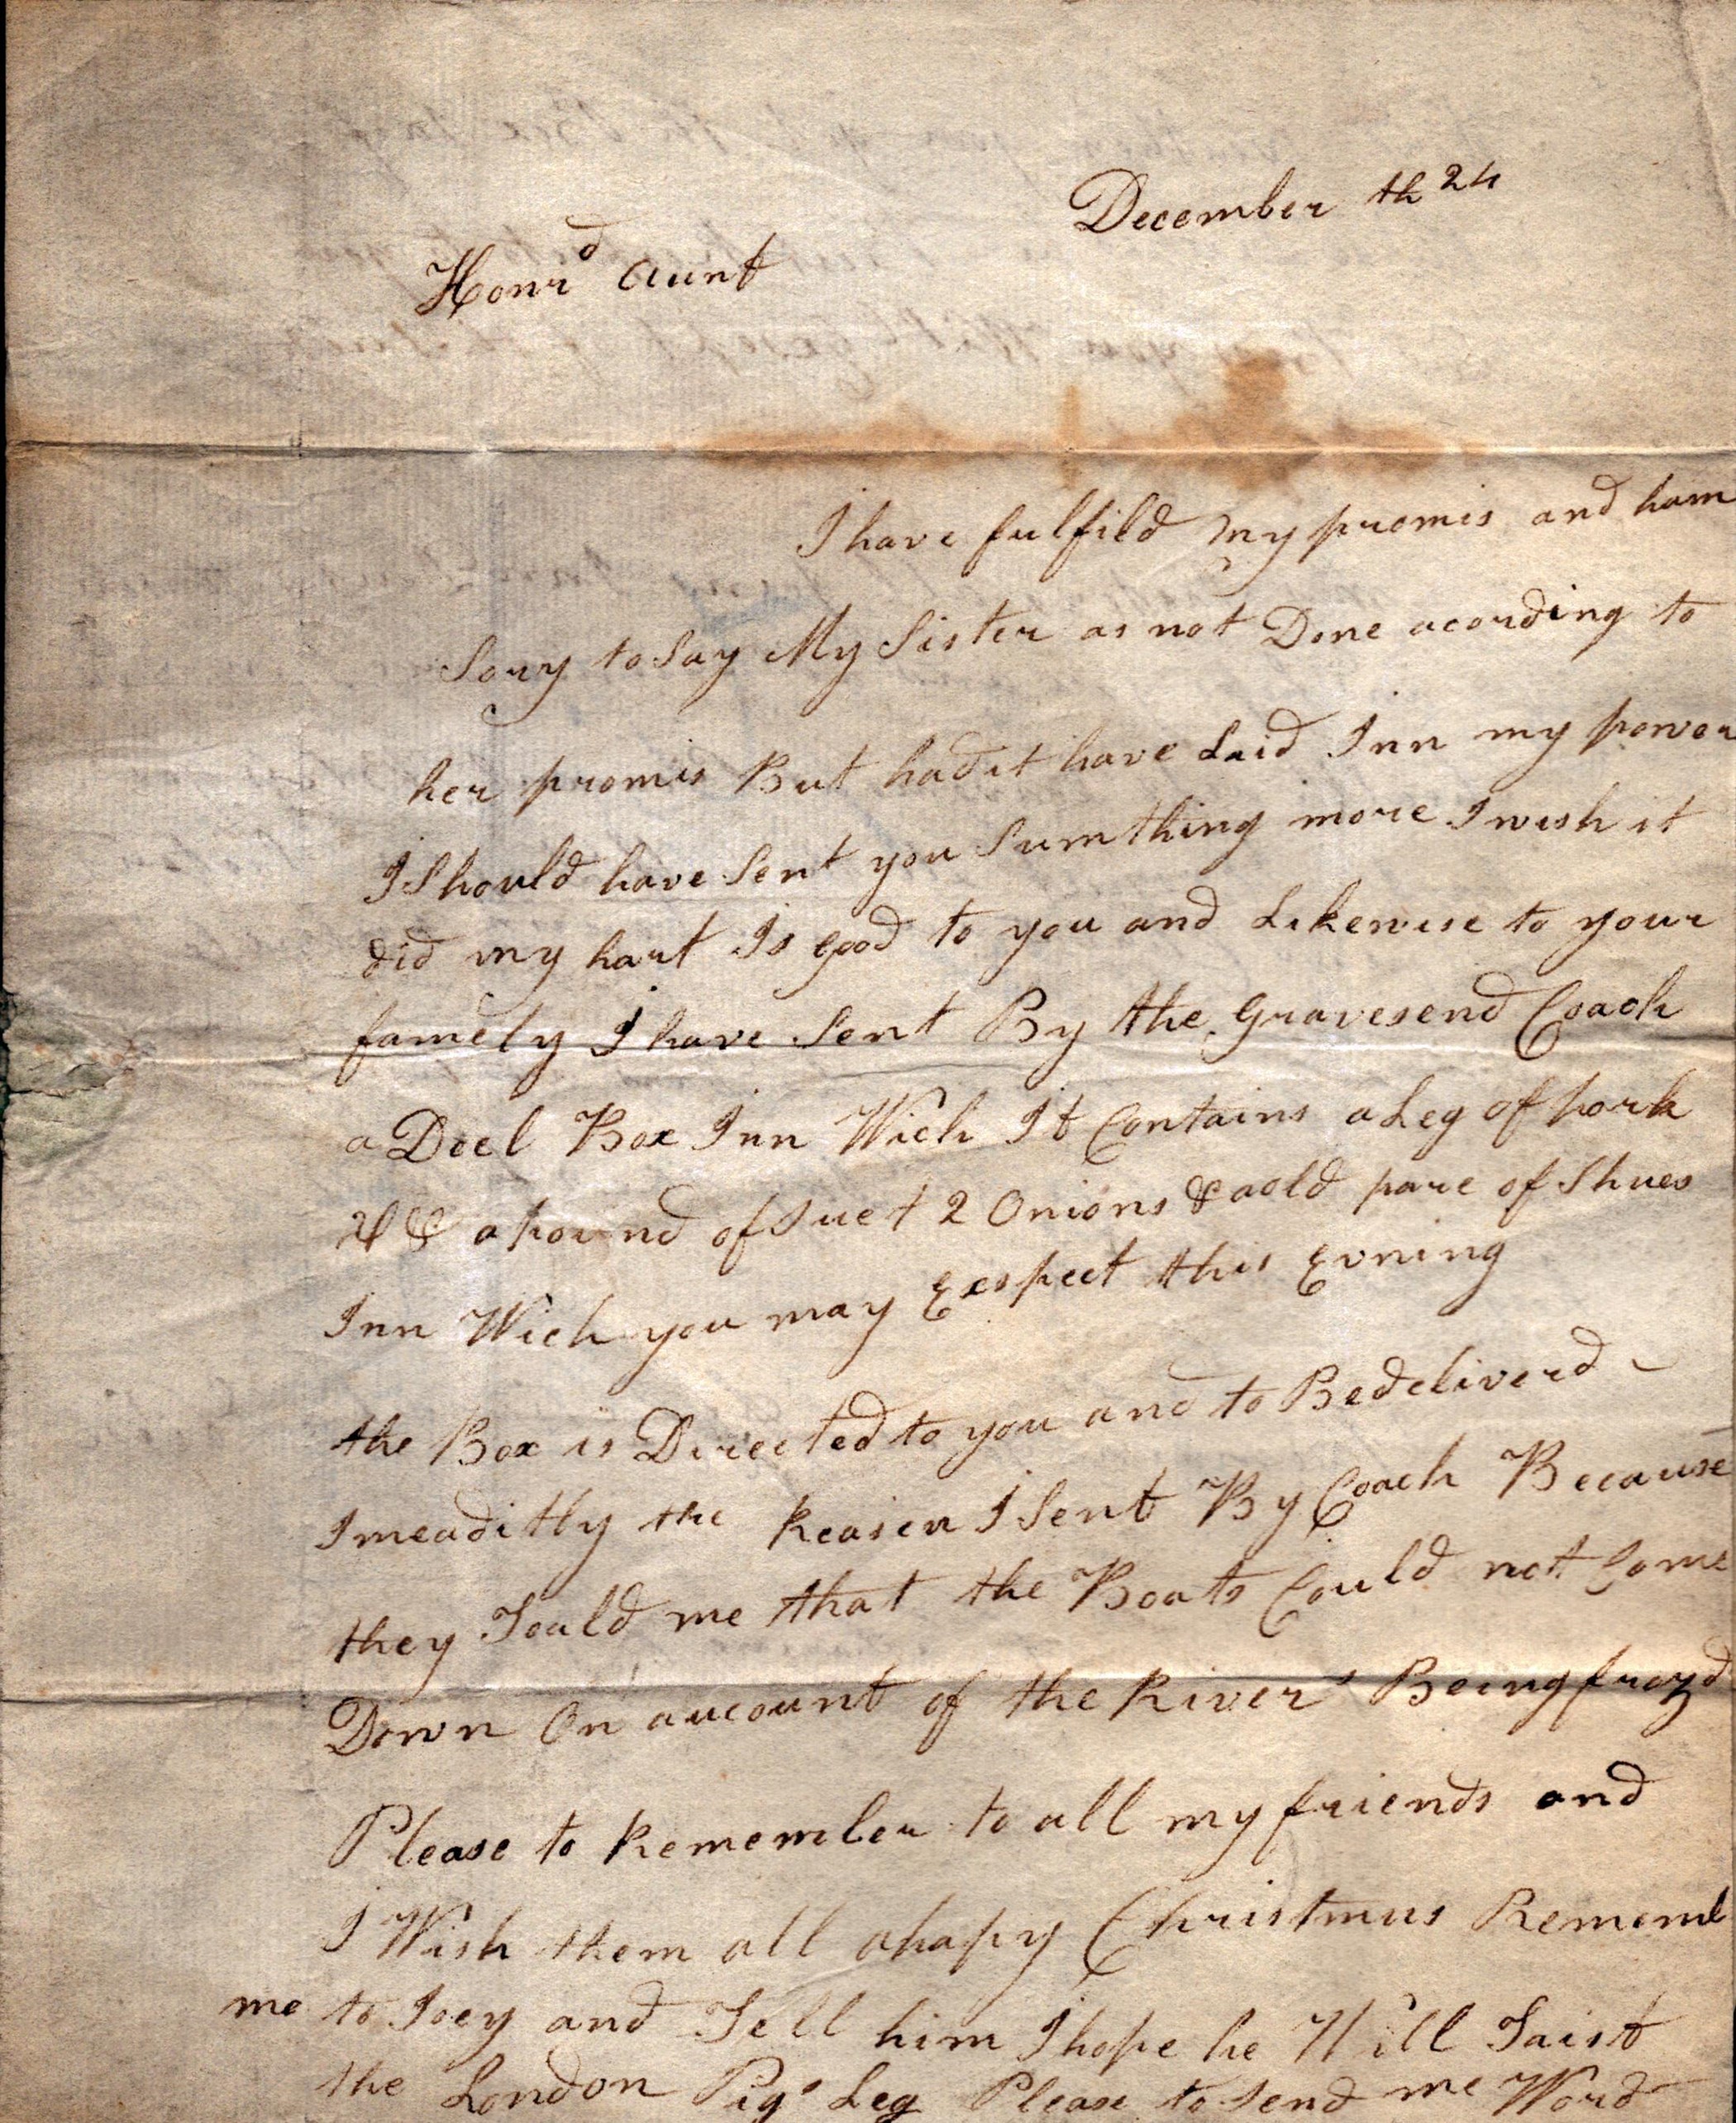 December th 24
Honrd Aunt
I have fulfild My promis and ham
Sory to Say My Sister as not Done acording to
her promis But had it have Laid Inn my power
I Should have Sent you Sumthing more I wish it
did my hart Is good to you and Likewise to your
famely I have Sent By the Gravesend Coach
a Deel Box Inn Wich It Contains a Leg of pork
& a pound of Suet 2 Onions & a old pare of Shues
Inn Wich you may Exspect this Evning
the Box is Directed to you and to Be deliverd
Imeaditly the Reason I Sent By Coach Because
they Tould me that the Boats Could not Come
Down On account of the River's Being frozd
Please to Remember to all my friends and
I Wish them all a hapy Christmus Rememb
me to Joey and Tell him I hope he Will Taist
the London Pigs Leg Please to Send me Word